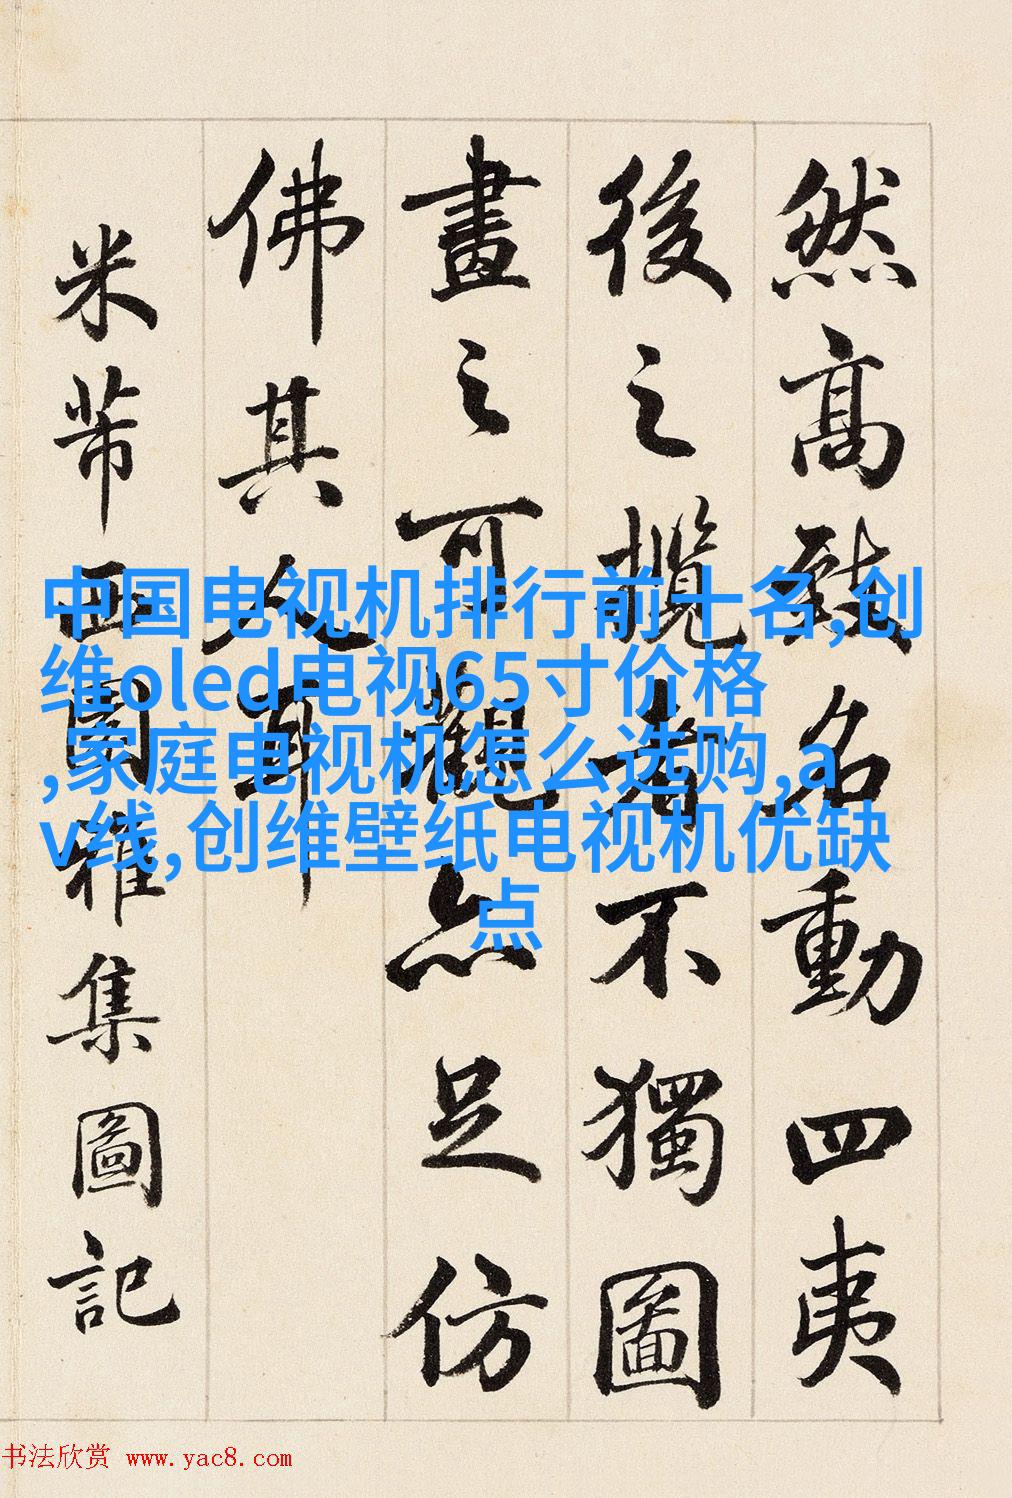 然高致名動四夷
後之攬者不獨圖
畫之可觀亦足仿
佛其人耳
米芾西園雅集圖記
中国电视机排行前十名,创
维oled电视65寸价格
,家庭电视机怎么选购,a
v线,创维壁纸电视机优缺
点
书法欣赏 www.yac8.com